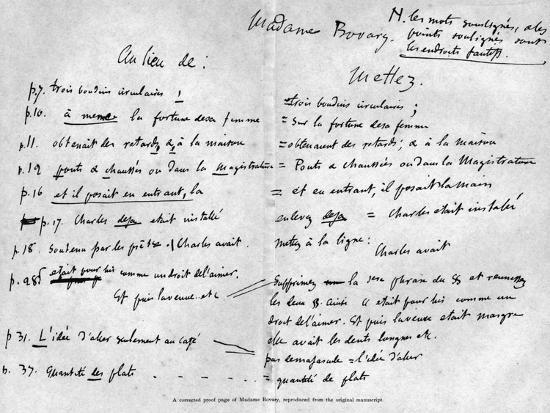 Madame Bovary.
N. les mots soulignés, et les
points soulignés sont
les endroits fautifs.
Au lieu de :
Mettez.
p. 7. trois boudins circulaires !
= trois boudins circulaires ;
p. 10. à meme la fortune desa femme
= sur la fortune desa femme
p. 11. obtenait des retards, d, à la maison
= obtenaient des retards, d à la maison
p. 19 ponts & chaussées ou dans la magistrature
= Ponts & Chaussées ou dans la Magistrature
p. 16 et il posait en entrant, la
= et en entrant, il posait la main
p. 17. Charles deja etait installé
enlevez deja = Charles etait installé
p. 18. Soutenu par les / Charles avait.
mettez à la ligne : Charles avait
p. 28 etait pour lui comme un droit de l'aimer.
Et puis la veuve. etc
Supprimez la phrase du § et reunissez
les deux §. Ainsi etait pour lui comme un
droit de l'aimer. Et puis la veuve etait maigre
elle avait les dents longues etc.
p 31. L'idée d'aller seulement au café
pas de majuscule = l'idée d'aller
p. 37. Quantité des plats - - - -
quantité de plats
A corrected proof page of Madame Bovary, reproduced from the original manuscript.